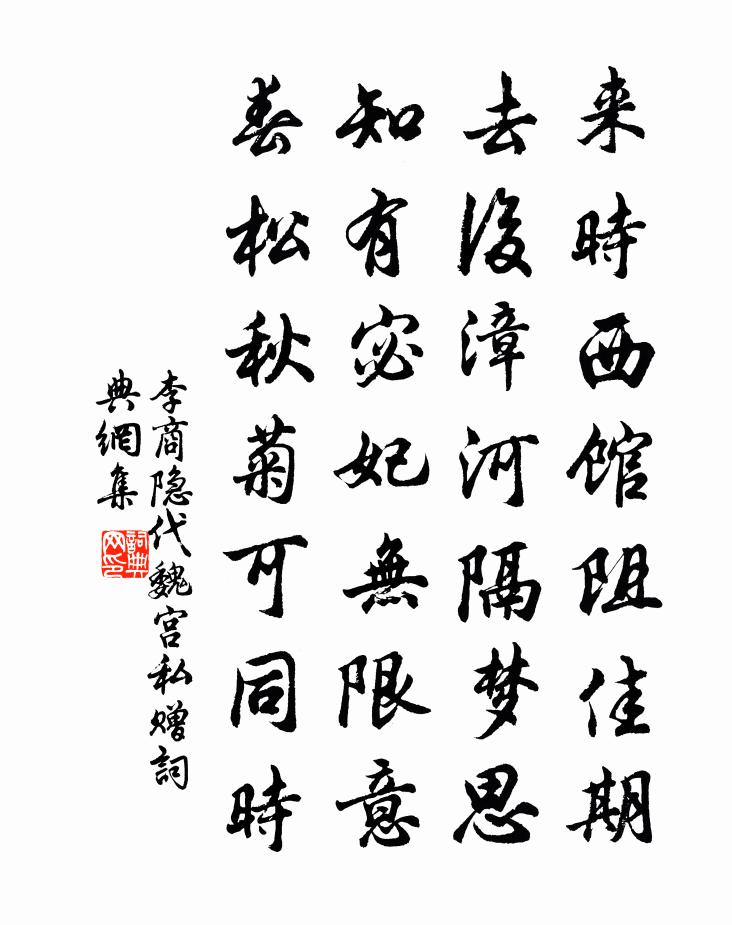 来時西館阻佳期
去後漳河隔梦思
知有宓妃無限意
春松秋菊可同時
李商隐代魏宫私赠詞
典網集
詞典网印